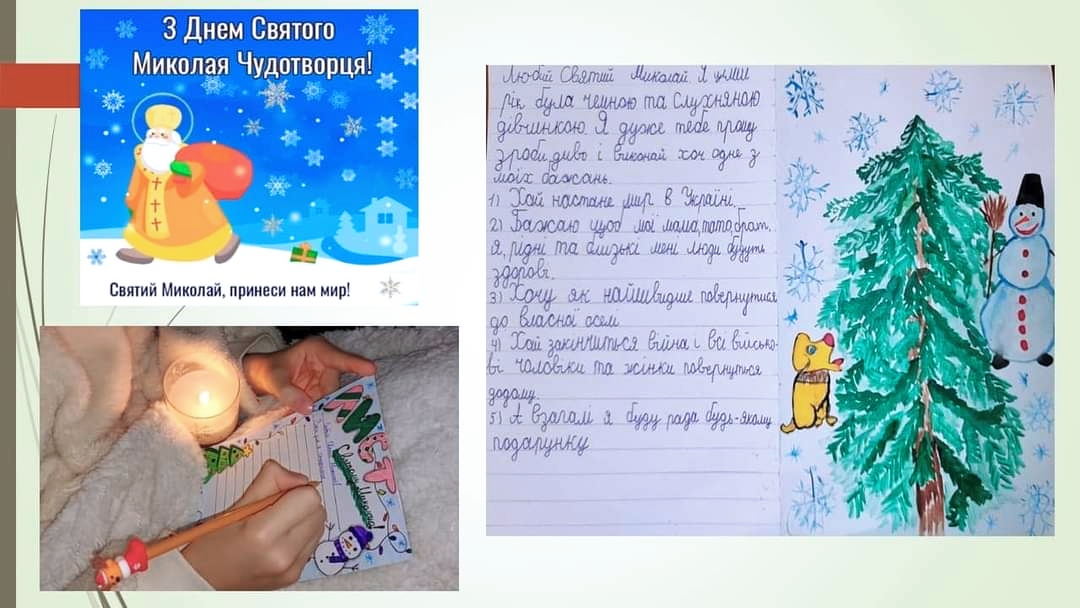 З Днем Святого
Миколая Чудотворця!
Святий Миколай, принеси нам мир!
ЛИСТ
Святому Миколаю
Любий Святий Миколай. Я цілий
рік була чемною та слухняною
дівчинкою. Я дуже тебе прошу
зроби диво і виконай хоч одне з
моїх бажань.
1) Хай настане мир в Україні.
2) Бажаю щоб мої мама, тато, брат,
я, рідні та близькі мені люди будуть
здорові.
3) Хочу як найшвидше повернутися
до власної оселі
4) Хай закінчиться війна і всі військо-
ві чоловіки та жінки повернуться
додому.
5) А взагалі я буду рада будь-якому
подарунку